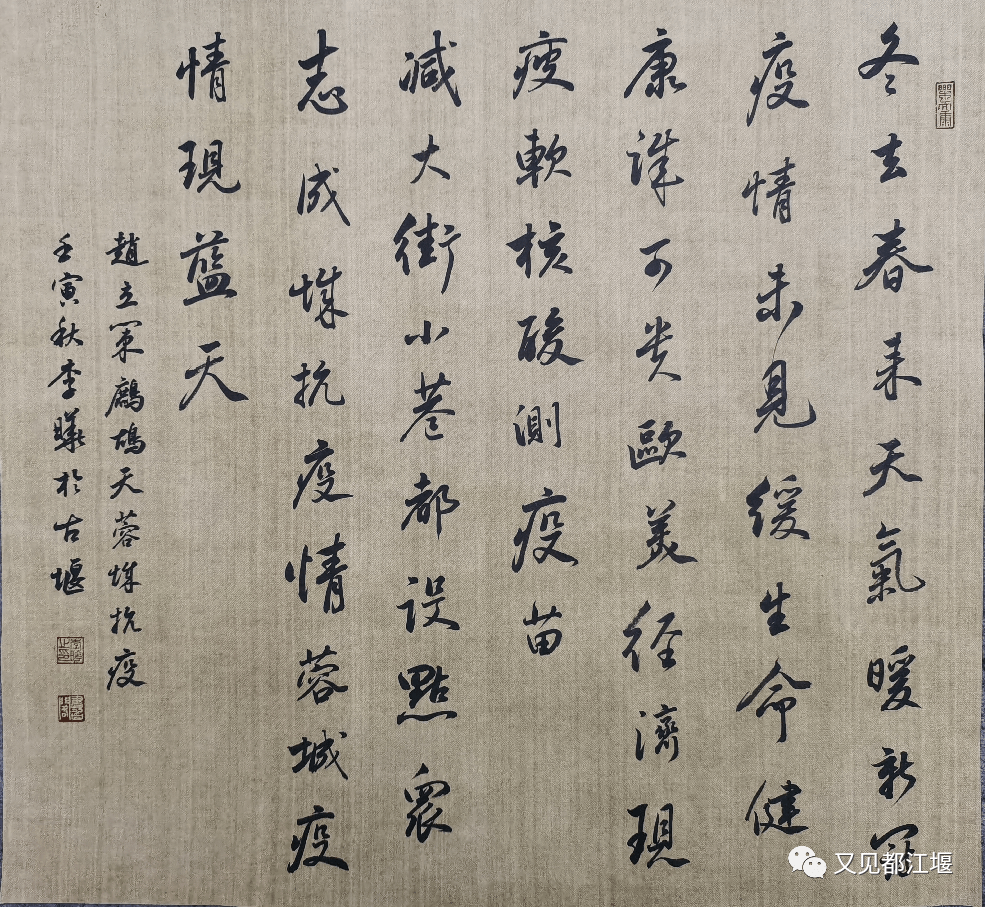 冬去春来天氣暖新冠
疫情未見緩生命健
康誠可贵歐美径濟現
疲軟核酸測疫苗
減大街小巷都设點衆
志成城抗疫情蓉城疫
情現藍天
趙立军鷓鴣天蓉城抗疫
壬寅秋李曦於古堰
又见都江堰